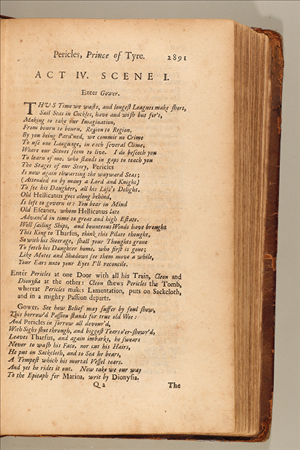 Pericles, Prince of Tyre. 2891
ACT IV. SCENE I.
Enter Gower.
THUS Time we waste, and longest Leagues make short,
Sail Seas in Cockles, have and wish but for't,
Making to take our Imagination,
From bourn to bourn, Region to Region,
By you being Pard'ned, we commit no Crime
To use one Language, in each several Clime,
Where our Scenes seem to live. I do beseech you
To learn of me, who stands in gaps to teach you
The Stages of our Story, Pericles
Is now again thwarting the wayward Seas;
(Attended on by many a Lord and Knight)
To see his Daughter, all his Life's Delight.
Old Hellicanus goes along behind,
Is left to govern it: You bear in Mind
Old Escanes, whom Hellicanus late
Advanc'd in time to great and high Estate.
Well sailing Ships, and bounteous Winds have brought
This King to Tharsus, think this Pilate thought,
So with his Steerage, shall your Thoughts groan
To fetch his Daughter home, who first is gone;
Like Motes and Shadows see them move a while,
Your Ears unto your Eyes I'll reconcile.
Enter Pericles at one Door with all his Train, Cleon and
Dionysia at the other: Cleon shews Pericles the Tomb,
whereat Pericles makes Lamentation, puts on Sackcloth,
and in a mighty Passion departs.
Gower. See how Belief may suffer by foul show,
This borrow'd Passion stands for true old Woe:
And Pericles in sorrow all devour'd,
With Sighs shot through, and biggest Tears o'er-show'r'd,
Leaves Tharsus, and again imbarks, he swears
Never to wash his Face, nor cut his Hairs,
He put on Sackcloth, and to Sea he bears,
A Tempest which his mortal Vessel tears.
And yet he rides it out. Now take we our way
To the Epitaph for Marina, writ by Dionysia.
Q 2 The